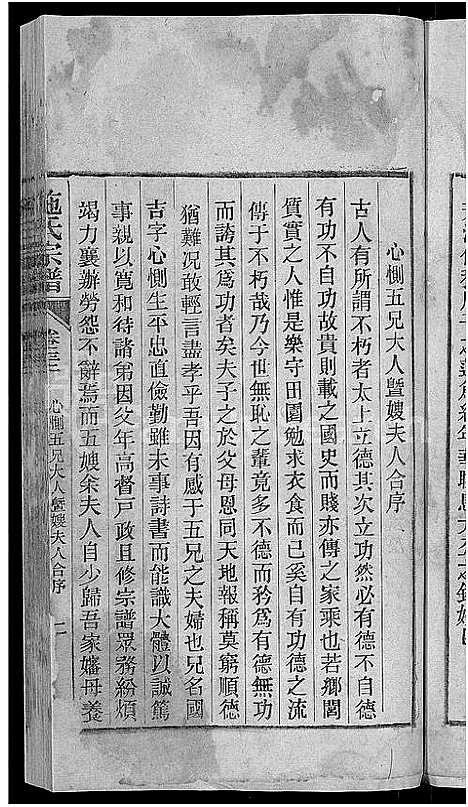 心惻五兄大人暨嫂夫人合序
古人有所謂不朽者太上立德其次立功然必有德不自德
有功不自功故貴則載之國史而賤亦傳之家乘也若鄉閭
質實之人惟是樂守田園勉求衣食而已奚自有功德之流
傳于不朽哉乃今世無恥之輩竟多不德而矜爲有德無功
而誇其爲功者矣夫子之於父母恩同天地報稱莫窮順德
猶難况敢輕言盡孝乎吾因有感于五兄之夫婦也兄名國
吉字心惻生平忠直儉勤雖未事詩書而能識大體以誠篤
事親以寬和待諸弟因父年高督戸政且修宗譜眾務紛煩
竭力襄辦勞怨不辭焉而五嫂余夫人自少歸吾家嬸母養
施氏宗譜
卷三
心惻五兄大人暨嫂夫人合序